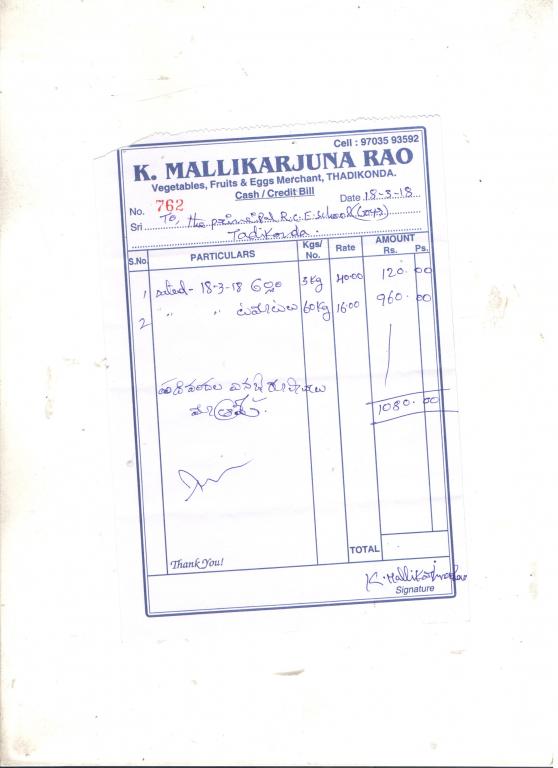 Cell : 97035 93592
K. MALLIKARJUNA RAO
Vegetables, Fruits & Eggs Merchant, THADIKONDA.
Cash / Credit Bill
No. 762 Date 18-3-18
Sri To, the principal R.C.E. School (Boys)
Tadikonda.
S.No. PARTICULARS Kgs/ No. Rate AMOUNT Rs. Ps.
1 dated- 18-3-18 3kg 40.00 120.00
2 " " టమోటాలు 60kg 16.00 960.00
1080.00
TOTAL
Thank You!
K. Mallikarjuna Rao
Signature